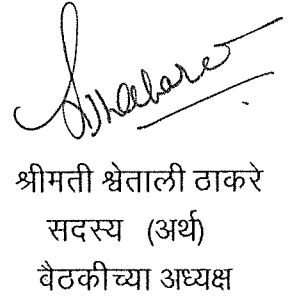 श्रीमती श्वेताली ठाकरे
सदस्य (अर्थ)
वैठकीच्या अध्यक्ष